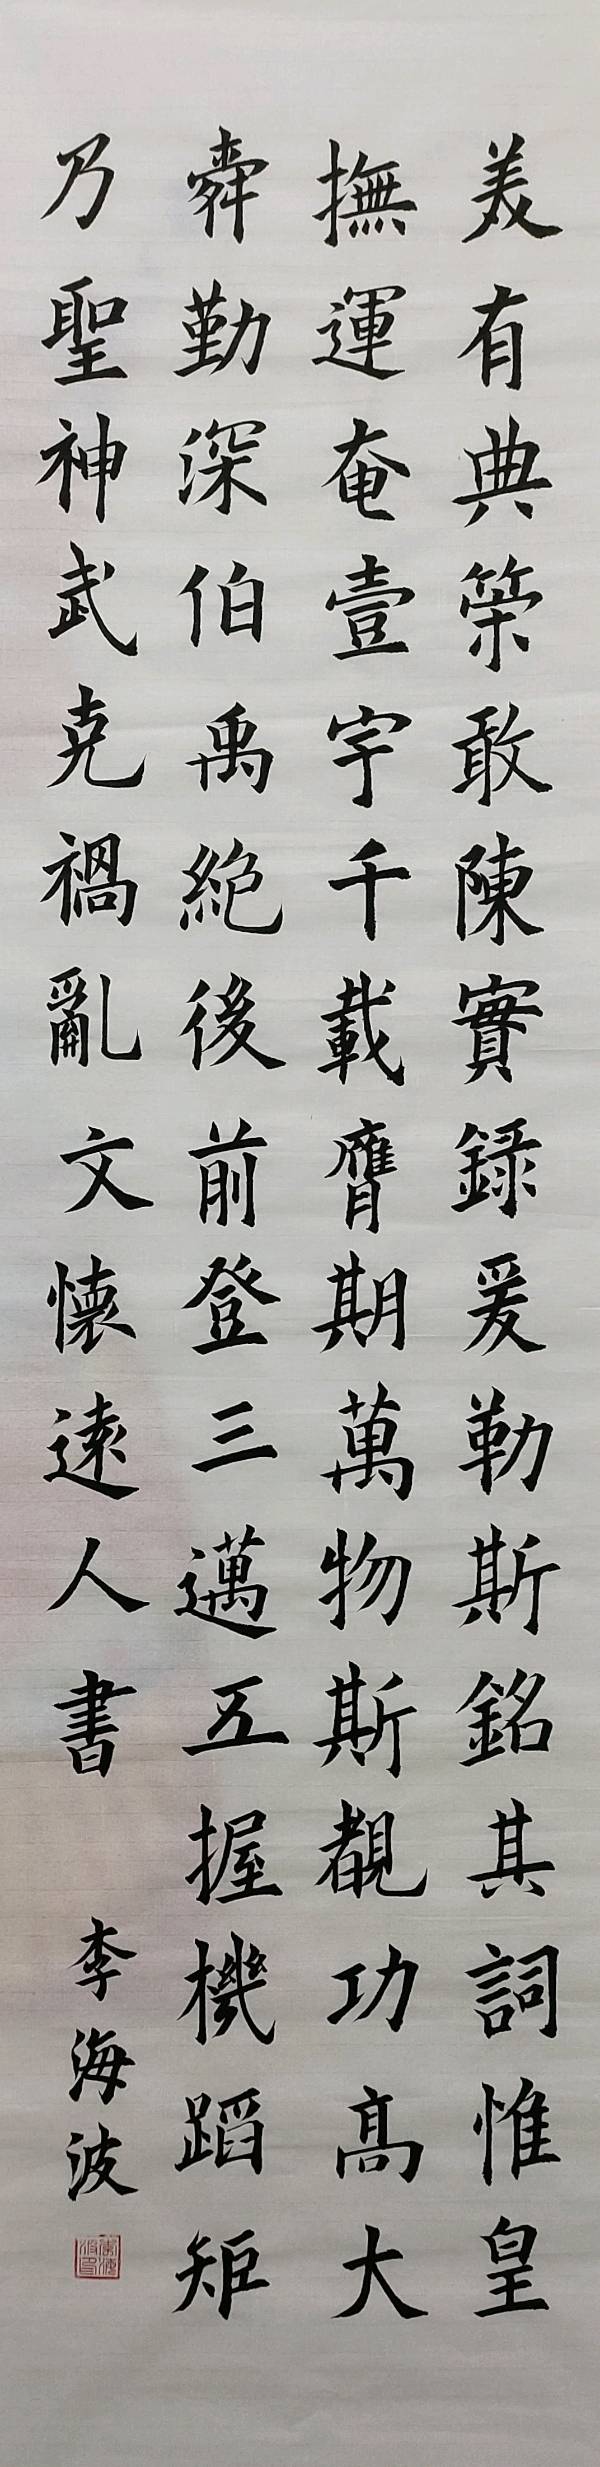 美有典策敢陳實錄爰勒斯銘其詞惟皇
撫運奄壹宇千載膺期萬物斯覩功高大
舜勤深伯禹絶後前登三邁五握機蹈矩
乃聖神武克禍亂文懷遠人書
李海波